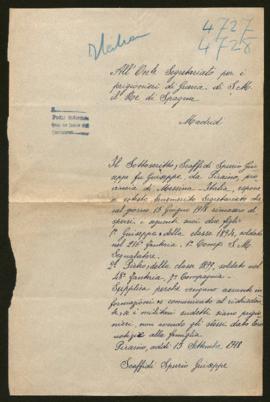 4727
4728
Italia
All'On.le Segretariato per i
prigionieri di Guerra di S. M.
il Re di Spagna
Madrid
Il Sottoscritto, Scaffidi Spurio Giu-
seppe fu Giuseppe da Piraino, pro-
vincia di Messina Italia, espone
a codesto Segretariato che
nel giorno 15 Giugno 1918 rimasero di-
spersi i seguenti suoi due figli
1° Giuseppe della classe 1894, soldato
nel 216° Fanteria, 1ª Comp. S. M.
Segnalatore.
2° Pietro, della classe 1899, soldato nel
Fanteria, 2ª Compagnia.
Supplica perché vengano assunte in-
formazioni e comunicato al richieden-
te, se i militari suddetti siano prigio-
nieri, non avendo gli stessi dato loro
notizie alla famiglia.
Piraino, addì 13 Settembre 1918
Scaffidi Spurio Giuseppe